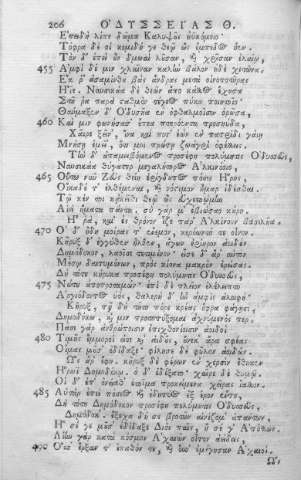 206 ὈΔΥΣΣΕΙΑΣ Θ.
Ἐπειδὴ λίπε δῶμα Καλυψοῦς ἠϋκόμοιο·
Τόφρα δέ οἱ κομιδή γε θεῷ ὣς ἔμπεδος ἦεν.
Τὸν δ' ἐπεὶ οὖν δμωαὶ λοῦσαν, καὶ χρῖσαν ἐλαίῳ,
455 Ἀμφὶ δέ μιν χλαῖναν καλὴν βάλον ἠδὲ χιτῶνα,
Ἔκ ῥ' ἀσαμίνθου βὰς ἄνδρας μέτα οἰνοποτῆρας
Ἤϊε. Ναυσικάα δὲ θεῶν ἄπο κάλλος ἔχουσα
Στῆ ῥα παρὰ σταθμὸν τέγεος πύκα ποιητοῖο·
Θαύμαζεν δ' Ὀδυσῆα ἐν ὀφθαλμοῖσιν ὁρῶσα,
460 Καί μιν φωνήσασ' ἔπεα πτερόεντα προσηύδα,
Χαῖρε ξεῖν', ἵνα καί ποτ' ἐὼν ἐν πατρίδι γαίῃ
Μνήσῃ ἐμεῦ, ὅτι μοι πρώτῃ ζωάγρι' ὀφέλλεις.
Τὴν δ' ἀπαμειβόμενος προσέφη πολύμητις Ὀδυσσεύς,
Ναυσικάα θύγατερ μεγαλήτορος Ἀλκινόοιο,
465 Οὕτω νῦν Ζεὺς θείη ἐρίγδουπος πόσις Ἥρης,
Οἴκαδέ τ' ἐλθέμεναι, καὶ νόστιμον ἦμαρ ἰδέσθαι.
Τῷ κέν τοι κἀκεῖθι θεῷ ὣς εὐχετοῴμην
Αἰεὶ ἤματα πάντα. σὺ γάρ μ' ἐβιώσαο κούρη.
Ἦ ῥα, καὶ ἐς θρόνον ἷζε παρ' Ἀλκίνοον βασιλῆα.
470 Οἱ δ' ἤδη μοίρας τ' ἔνεμον, κερόωντό τε οἶνον.
Κῆρυξ δ' ἐγγύθεν ἦλθεν, ἄγων ἐρίηρον ἀοιδὸν
Δημόδοκον, λαοῖσι τετιμένον· εἷσε δ' ἄρ' αὐτὸν
Μέσσῳ δαιτυμόνων, πρὸς κίονα μακρὸν ἐρείσας.
Δὴ τότε κήρυκα προσέφη πολύμητις Ὀδυσσεύς,
475 Νώτου ἀποπροταμὼν, ἐπὶ δὲ πλεῖον ἐλέλειπτο
Ἀργιόδοντος ὑός, θαλερὴ δ' ἦν ἀμφὶς ἀλοιφή·
Κῆρυξ, τῇ δὴ τοῦτο πόρε κρέας ὄφρα φάγῃσι,
Δημοδόκῳ, καί μιν προσπτύξομαι ἀχνύμενός περ.
Πᾶσι γὰρ ἀνθρώποισιν ἐπιχθονίοισιν ἀοιδοὶ
480 Τιμῆς ἔμμοροί εἰσι καὶ αἰδοῦς, οὕνεκ' ἄρα σφέας
Οἴμας μοῦσ' ἐδίδαξε, φίλησε δὲ φῦλον ἀοιδῶν.
Ὣς ἄρ' ἔφη· κῆρυξ δὲ φέρων ἐν χερσὶν ἔθηκεν
Ἥρωϊ Δημοδόκῳ. ὁ δ' ἐδέξατο· χαῖρε δὲ θυμῷ.
Οἱ δ' ἐπ' ὀνείαθ' ἑτοῖμα προκείμενα χεῖρας ἴαλλον.
485 Αὐτὰρ ἐπεὶ πόσιος καὶ ἐδητύος ἐξ ἔρον ἕντο,
Δὴ τότε Δημόδοκον προσέφη πολύμητις Ὀδυσσεύς,
Δημόδοκ', ἔξοχα δή σε βροτῶν αἰνίζομ' ἁπάντων,
Ἢ σέ γε μοῦσ' ἐδίδαξε Διὸς παῖς, ἢ σέ γ' Ἀπόλλων.
Λίην γὰρ κατὰ κόσμον Ἀχαιῶν οἶτον ἀείδεις,
490 Ὅσσ' ἔρξαν τ' ἔπαθόν τε, καὶ ὅσσ' ἐμόγησαν Ἀχαιοί.